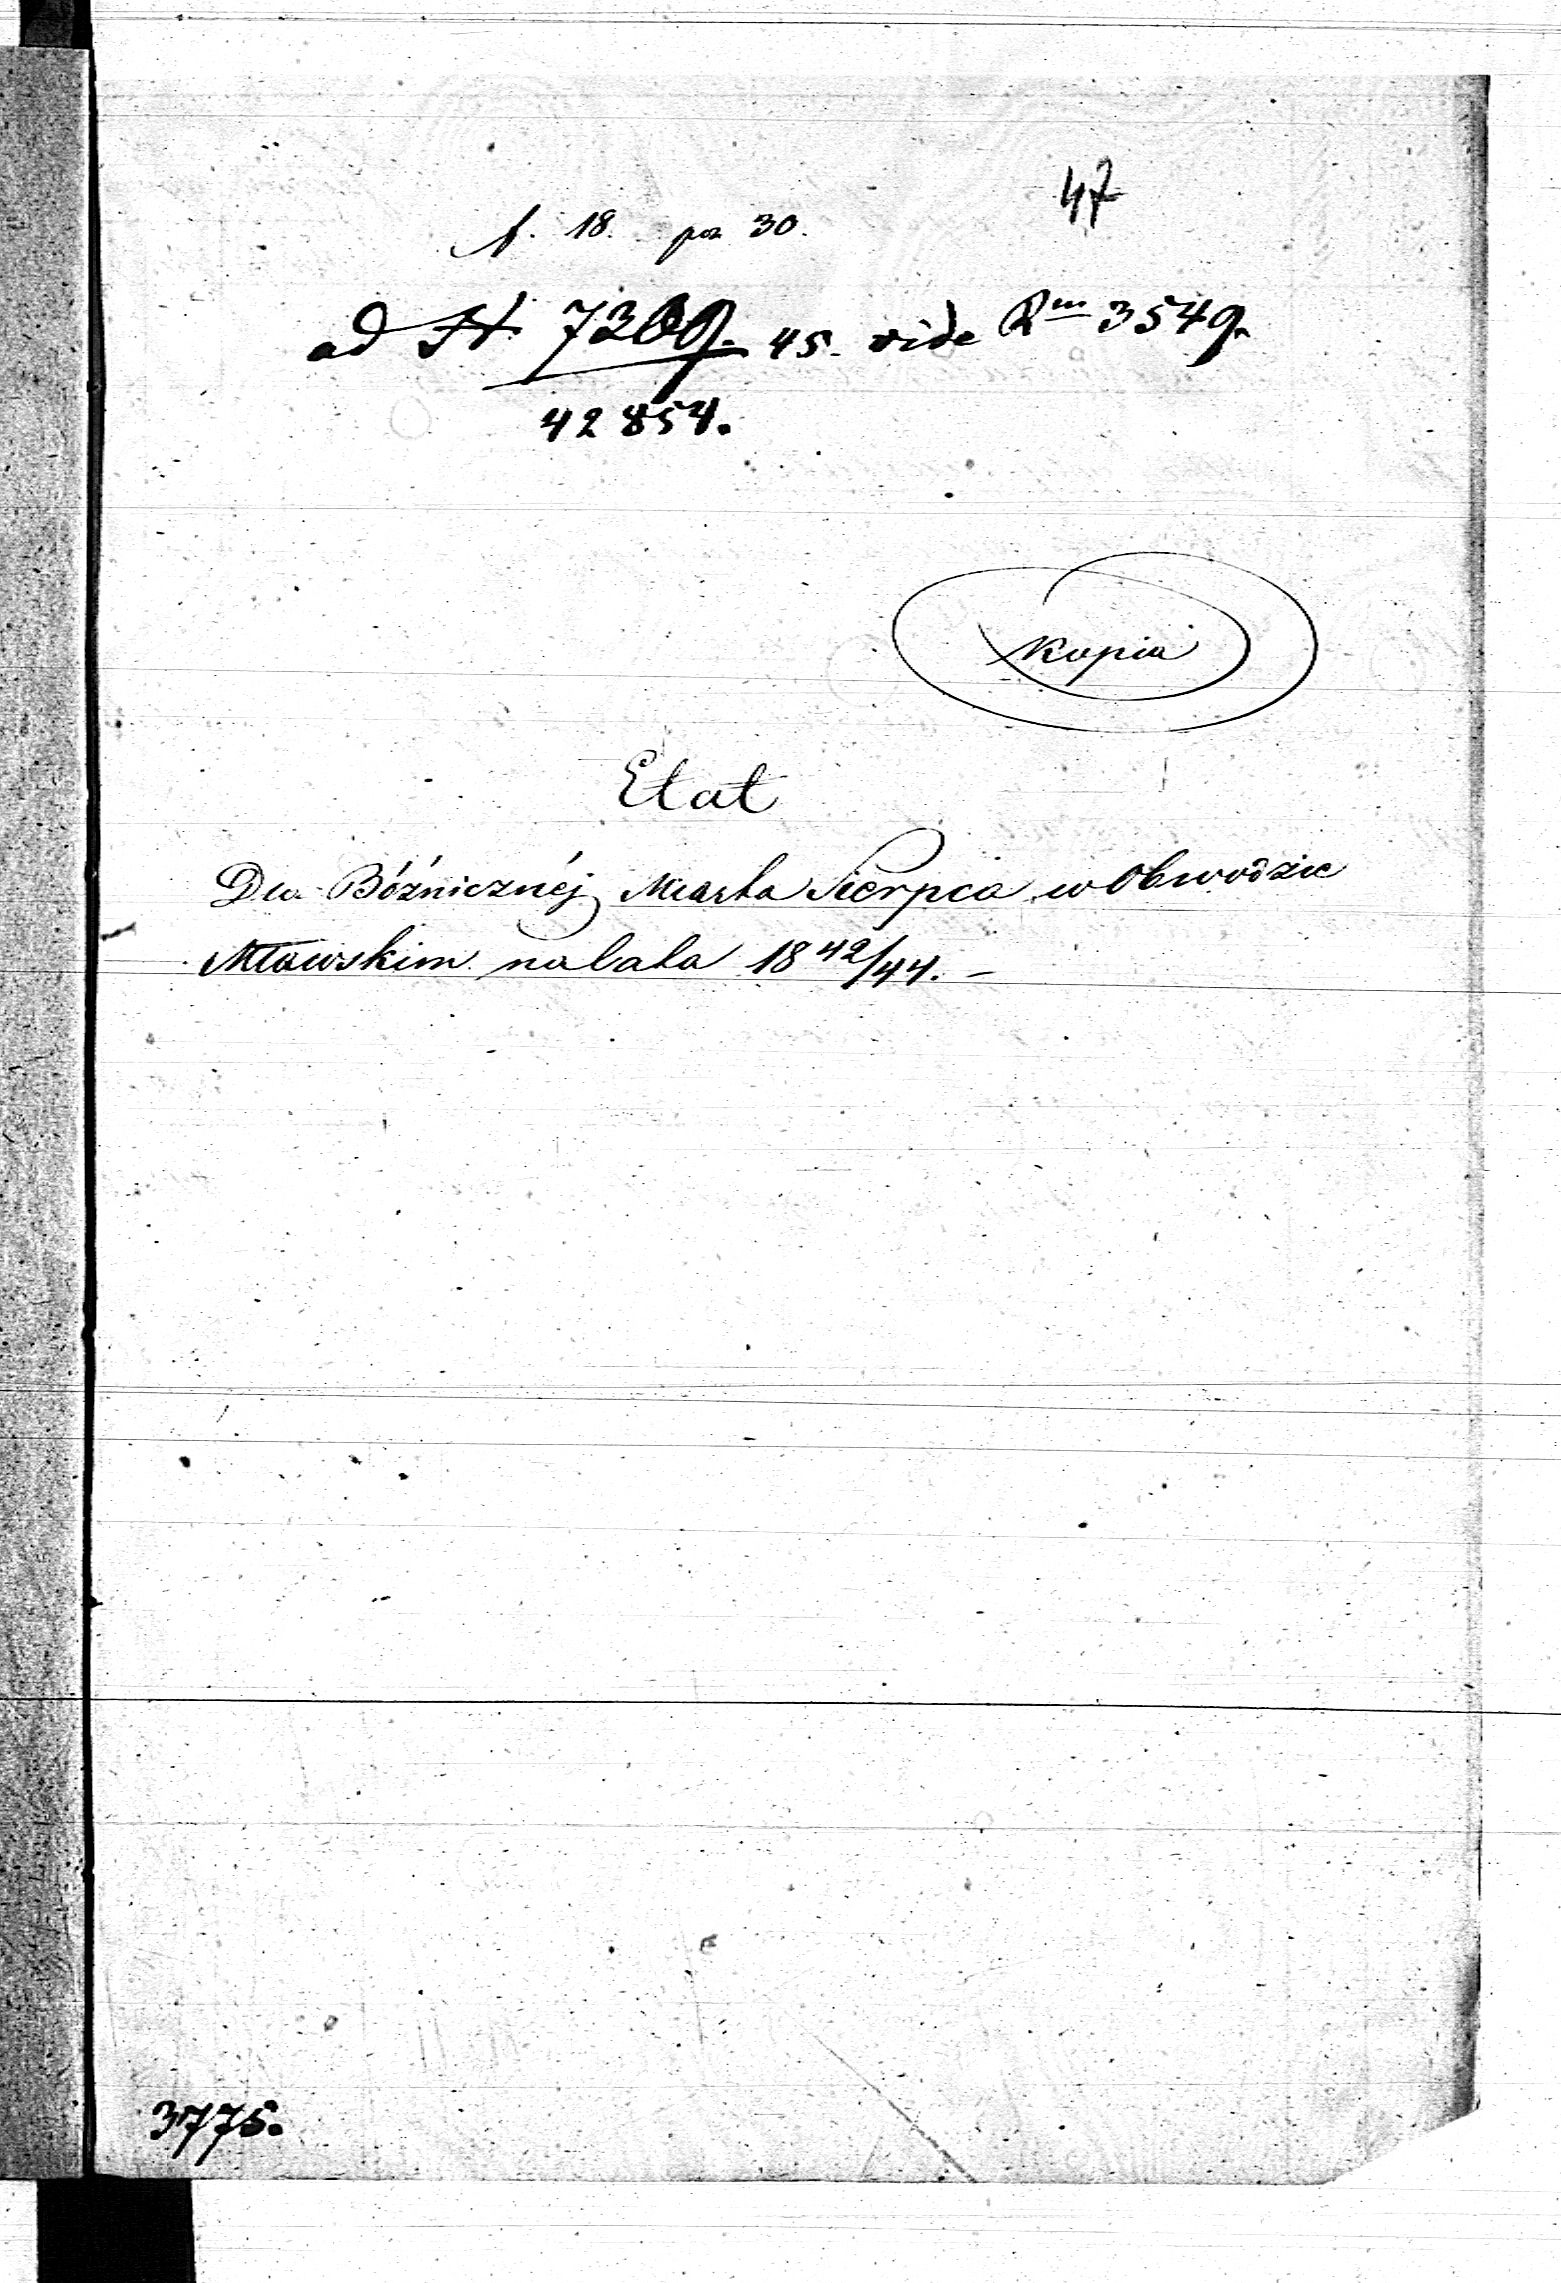 47
f. 18. poz 30.
ad N 7309. 45. vide Rm 3549.
42854.
Kopia
Etat
Dla Bóżnicznéj Miasta Sierpca w Obwodzie
Mławskim na lata 18 42/44. –
3775.